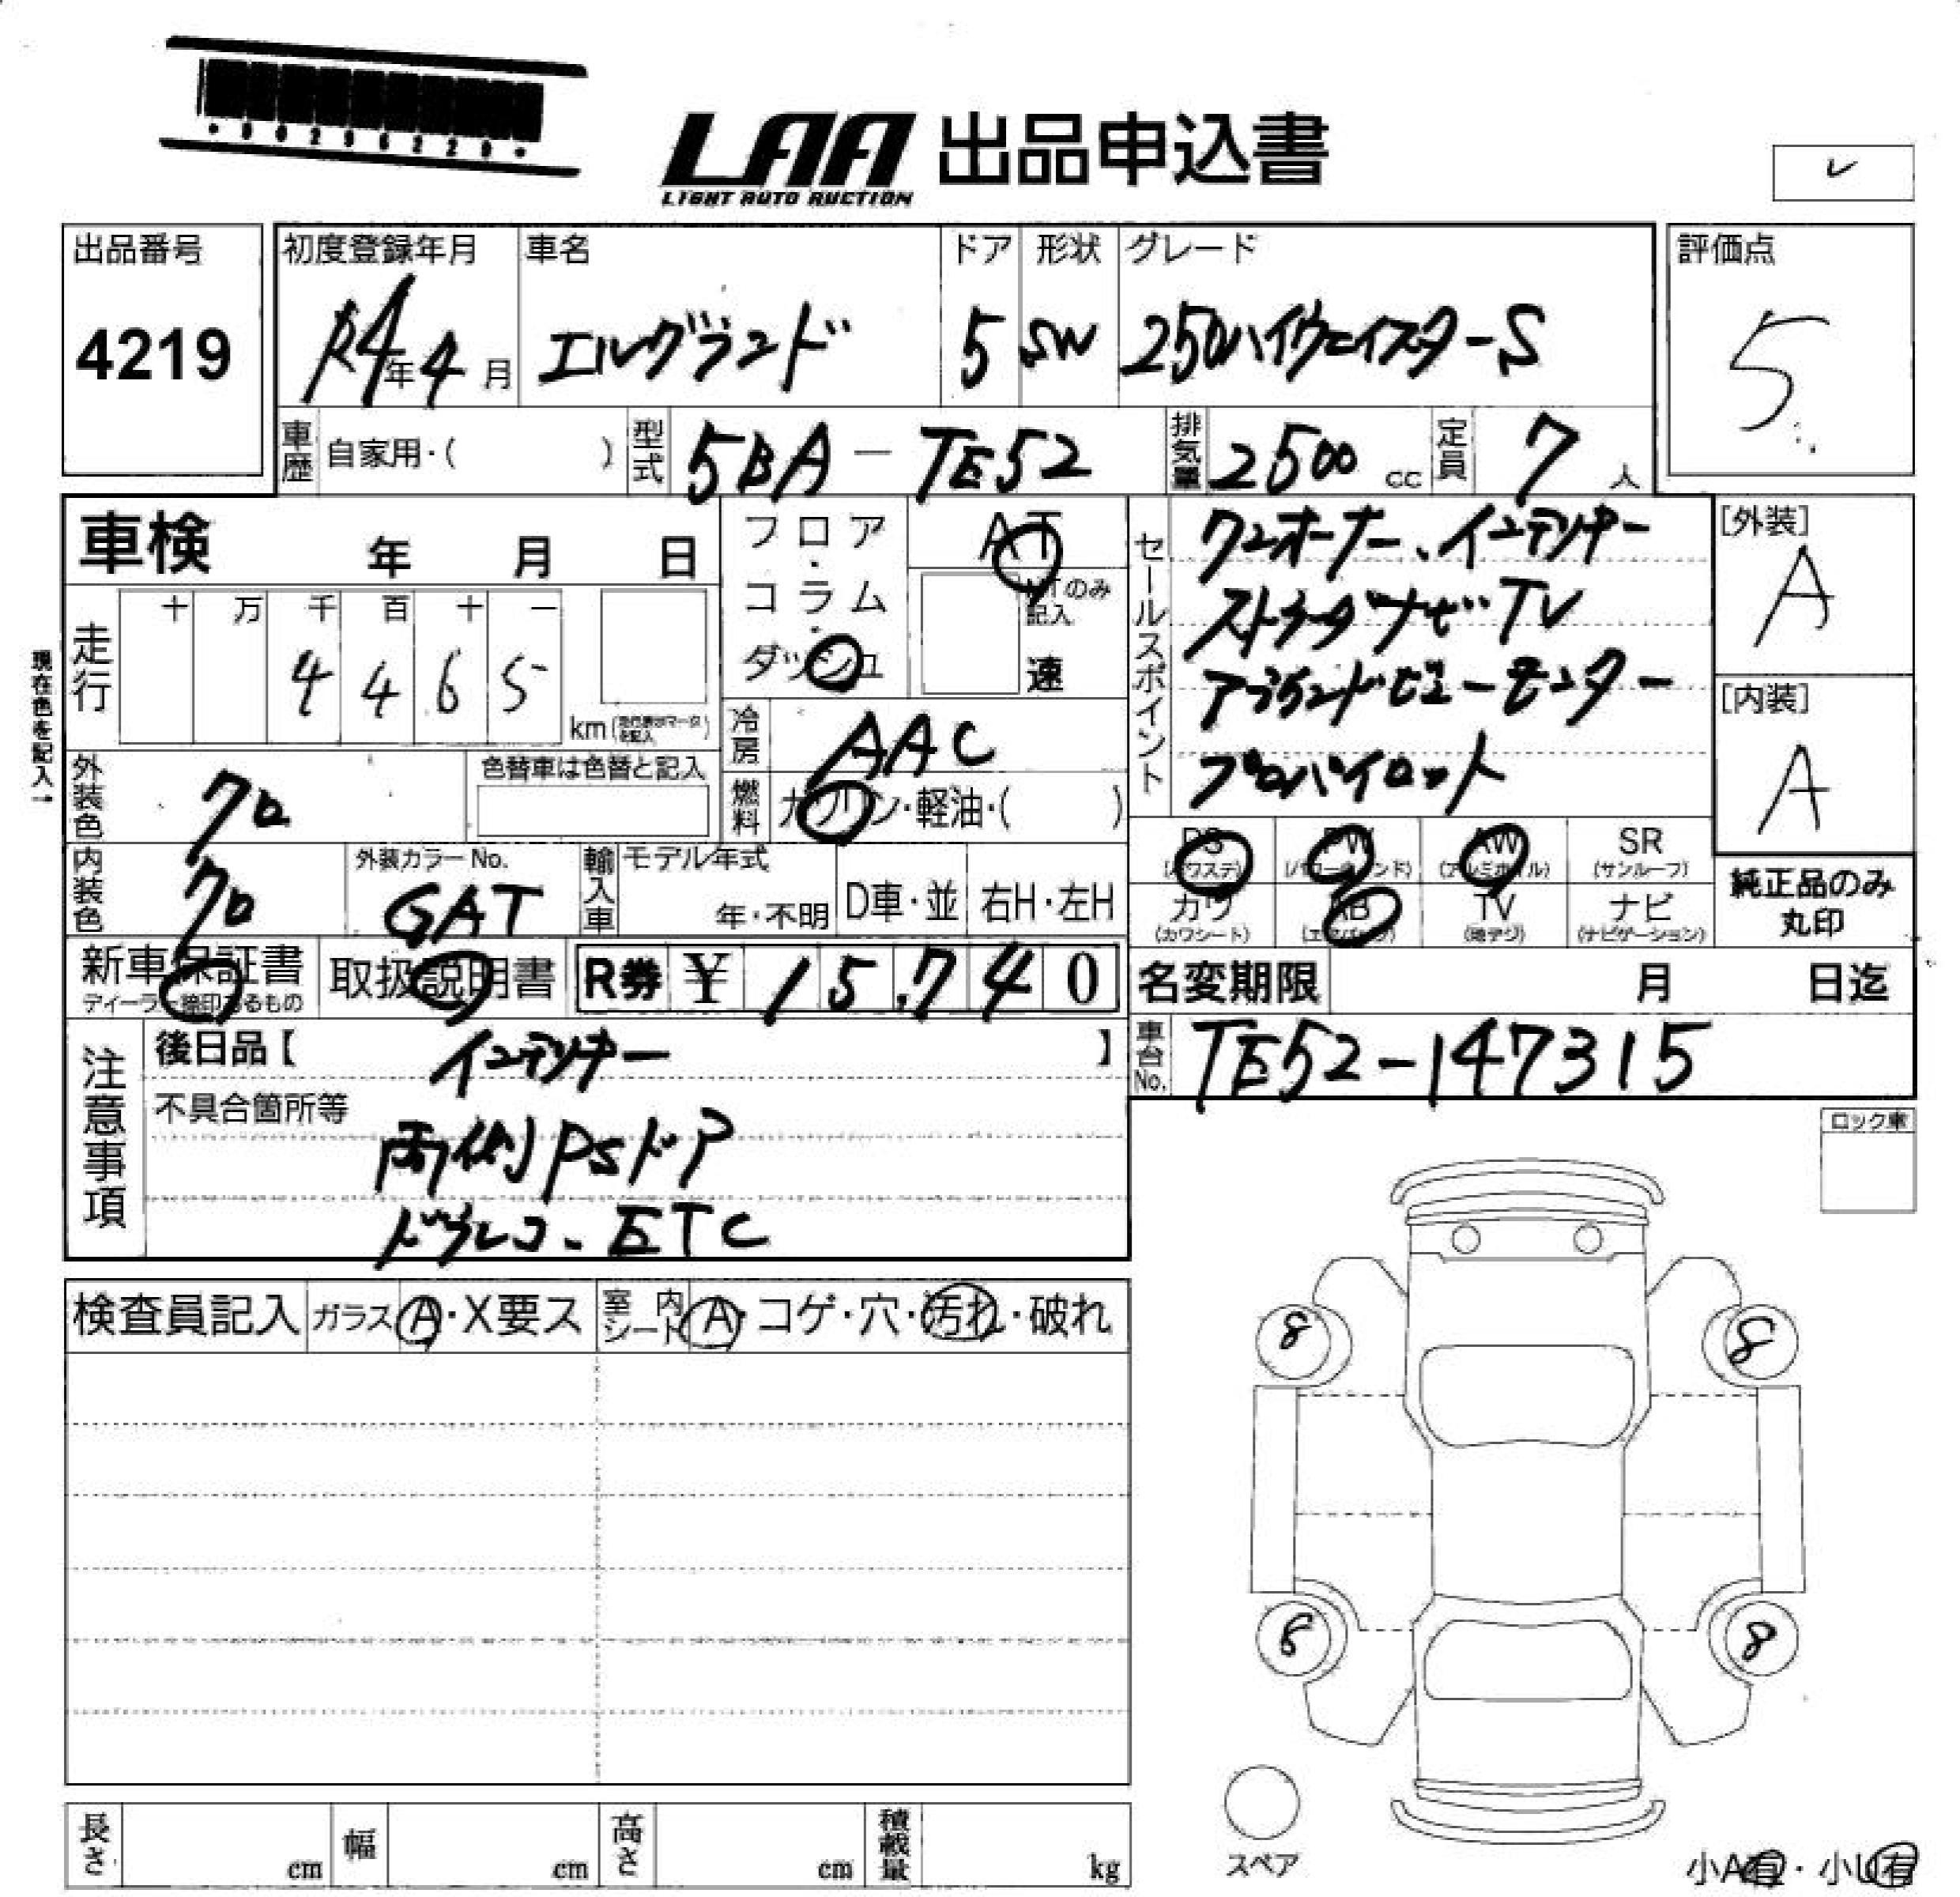 LAA 出品申込書
LIGHT AUTO AUCTION
レ
出品番号
4219
初度登録年月
R4年4月
車名
エルグランド
ドア
5
形状
SW
グレード
250ハイウェイスターS
評価点
5
車歴
自家用・( )
型式
5BA-TE52
排気量
2500 cc
定員
7 人
車検 年 月 日
フロア・コラム・ダッシュ
AT
MTのみ記入
速
セールスポイント
ワンオーナー、インテリキー
ストラーダナビ・TV
アラウンドビューモニター
プロパイロット
[外装]
A
[内装]
A
現在色を記入→
走行
十 万 千 百 十 一
4 4 6 5
km
冷房
AAC
燃料
ガソリン・軽油・( )
外装色
クロ
色替車は色替と記入
内装色
クロ
外装カラーNo.
GAT
輸入車
モデル年式
年・不明
D車・並
右H・左H
PS (パワステ)
PW (パワーウィンド)
AW (アルミホイル)
SR (サンルーフ)
カワ (カワシート)
AB (エアバッグ)
TV (地デジ)
ナビ (ナビゲーション)
純正品のみ
丸印
新車保証書
ディーラー捺印あるもの
取扱説明書
R券 ¥ 15,740
名変期限 月 日迄
車台No.
TE52-147315
注意事項
後日品【 インテリキー 】
不具合箇所等
両側PSドア
ドラレコ、ETC
ロック車
検査員記入
ガラス A・X要ス
室内シート A・コゲ・穴・汚れ・破れ
8 8
8
スペア
長さ cm
幅 cm
高さ cm
積載量 kg
小A有・小U有